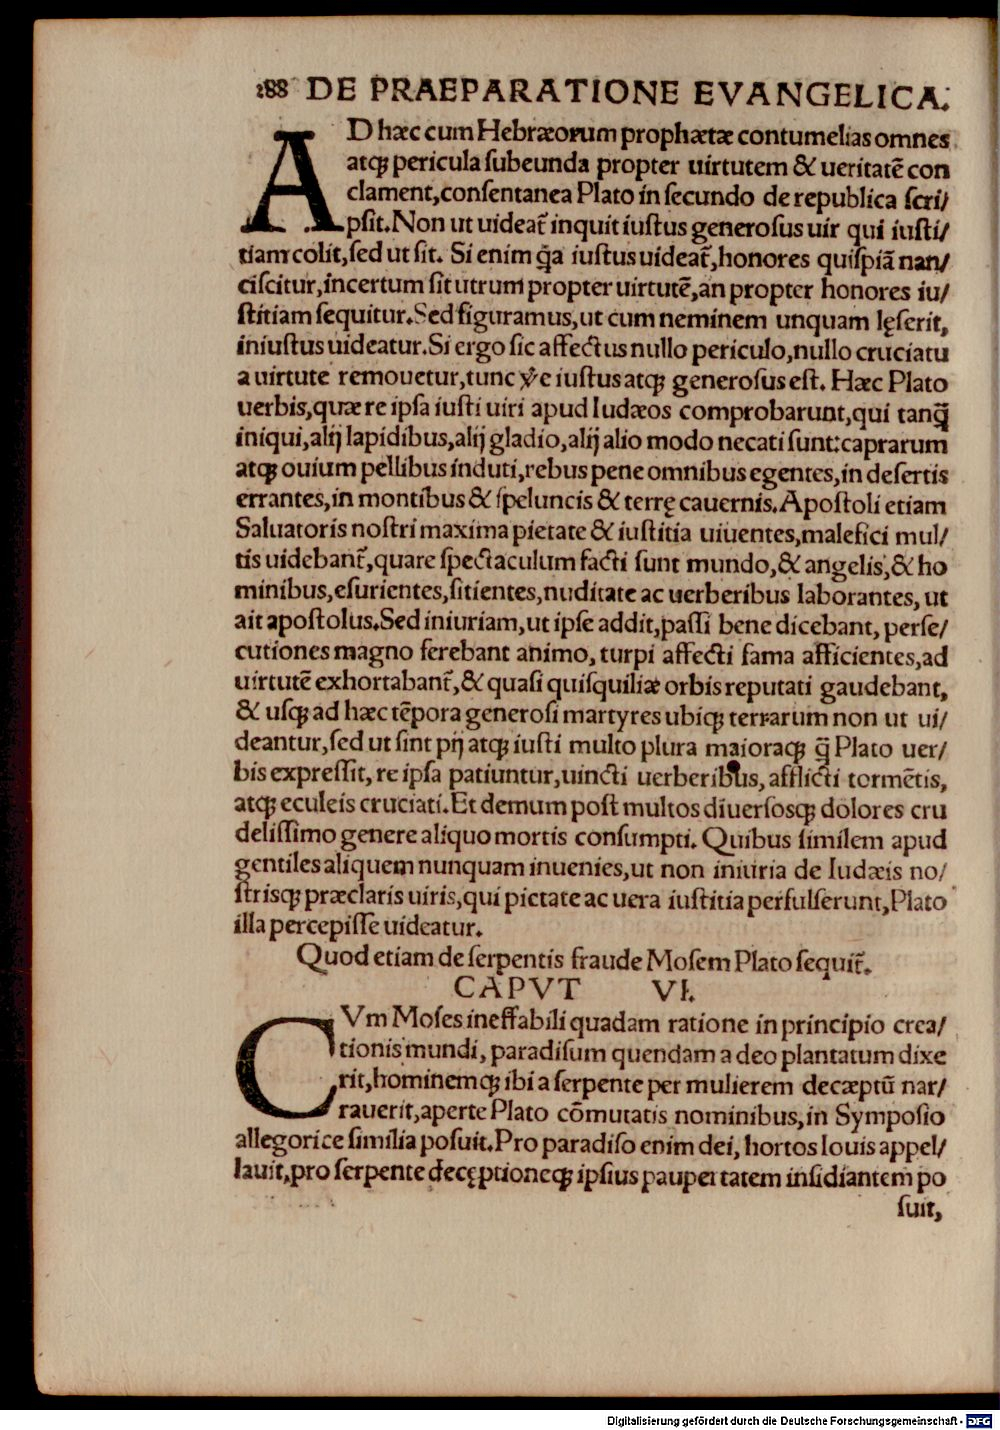 288 DE PRAEPARATIONE EVANGELICA.
AD hæc cum Hebræorum prophætæ contumelias omnes
atq; pericula ſubeunda propter uirtutem & ueritatē con
clament,conſentanea Plato in ſecundo de republica ſcri/
pſit.Non ut uideat̃ inquit iuſtus generoſus uir qui iuſti/
tiam colit,ſed ut ſit. Si enim q̃a iuſtus uideat̃,honores quiſpiã nan/
ciſcitur,incertum ſit utrum propter uirtutē,an propter honores iu/
ſtitiam ſequitur.Sed figuramus,ut cum neminem unquam lęſerit,
iniuſtus uideatur.Si ergo ſic affectus nullo periculo,nullo cruciatu
a uirtute remouetur,tunc ꝟe iuſtus atq; generoſus eſt. Hæc Plato
uerbis,quæ re ipſa iuſti uiri apud Iudæos comprobarunt,qui tanq̃
iniqui,alij lapidibus,alij gladio,alij alio modo necati ſunt:caprarum
atq; ouium pellibus induti,rebus pene omnibus egentes,in deſertis
errantes,in montibus & ſpeluncis & terrę cauernis.Apoſtoli etiam
Saluatoris noſtri maxima pietate & iuſtitia uiuentes,malefici mul/
tis uidebant̃,quare ſpectaculum facti ſunt mundo,& angelis,& ho
minibus,eſurientes,ſitientes,nuditate ac uerberibus laborantes, ut
ait apoſtolus.Sed iniuriam,ut ipſe addit,paſſi bene dicebant, perſe/
cutiones magno ferebant animo, turpi affecti fama afficientes,ad
uirtutē exhortabant̃,& quaſi quiſquiliæ orbis reputati gaudebant,
& uſq; ad hæc tēpora generoſi martyres ubiq; terrarum non ut ui/
deantur,ſed ut ſint pij atq; iuſti multo plura maioraq; q̃ Plato uer/
bis expreſſit, re ipſa patiuntur,uincti uerberibus, afflicti tormētis,
atq; eculeis cruciati.Et demum poſt multos diuerſosq; dolores cru
deliſſimo genere aliquo mortis conſumpti. Quibus ſimilem apud
gentiles aliquem nunquam inuenies,ut non iniuria de Iudæis no/
ſtrisq; præclaris uiris,qui pietate ac uera iuſtitia perfulſerunt,Plato
illa percepiſſe uideatur.
Quod etiam de ſerpentis fraude Moſem Plato ſequit̃.
CAPVT VI.
CVm Moſes ineffabili quadam ratione in principio crea/
tionis mundi, paradiſum quendam a deo plantatum dixe
rit,hominemq; ibi a ſerpente per mulierem decæptū nar/
rauerit,aperte Plato cōmutatis nominibus,in Sympoſio
allegorice ſimilia poſuit.Pro paradiſo enim dei, hortos Iouis appel/
lauit,pro ſerpente decęptioneq; ipſius paupertatem inſidiantem po
ſuit,
Digitalisierung gefördert durch die Deutsche Forschungsgemeinschaft - DFG